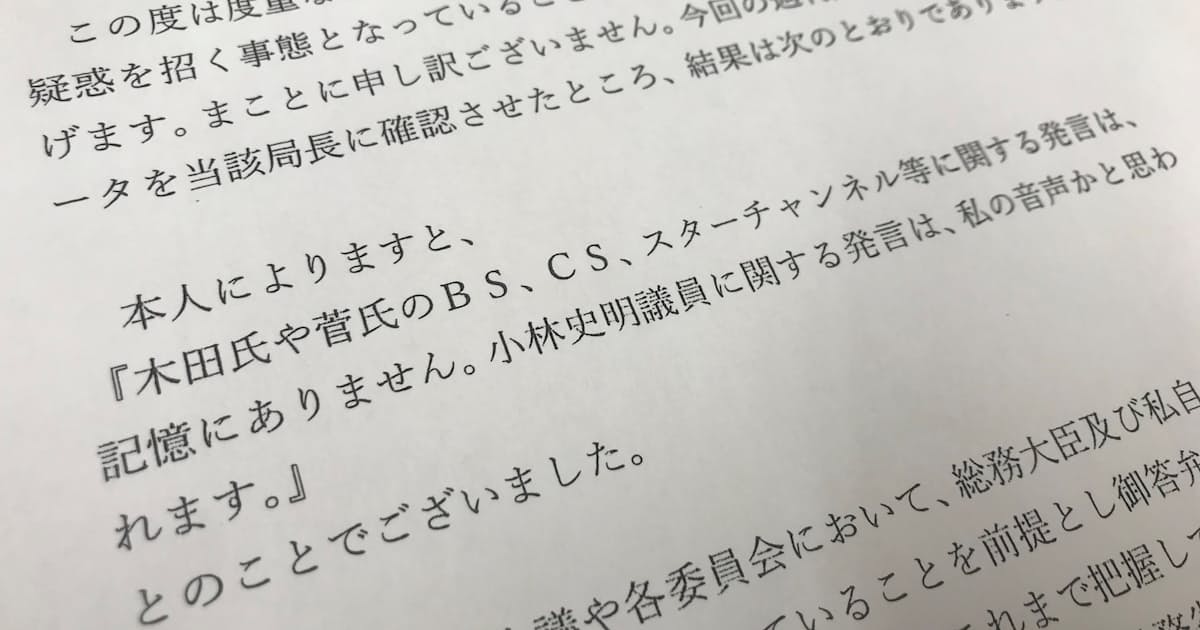 この度は度重な
疑惑を招く事態となっているこ
げます。まことに申し訳ございません。今回の週
ータを当該局長に確認させたところ、結果は次のとおりであります
本人によりますと、
『木田氏や菅氏のＢＳ、ＣＳ、スターチャンネル等に関する発言は、
記憶にありません。小林史明議員に関する発言は、私の音声かと思わ
れます。』
とのことでございました。
議や各委員会において、総務大臣及び私自
ていることを前提とし御答弁
れまで把握して